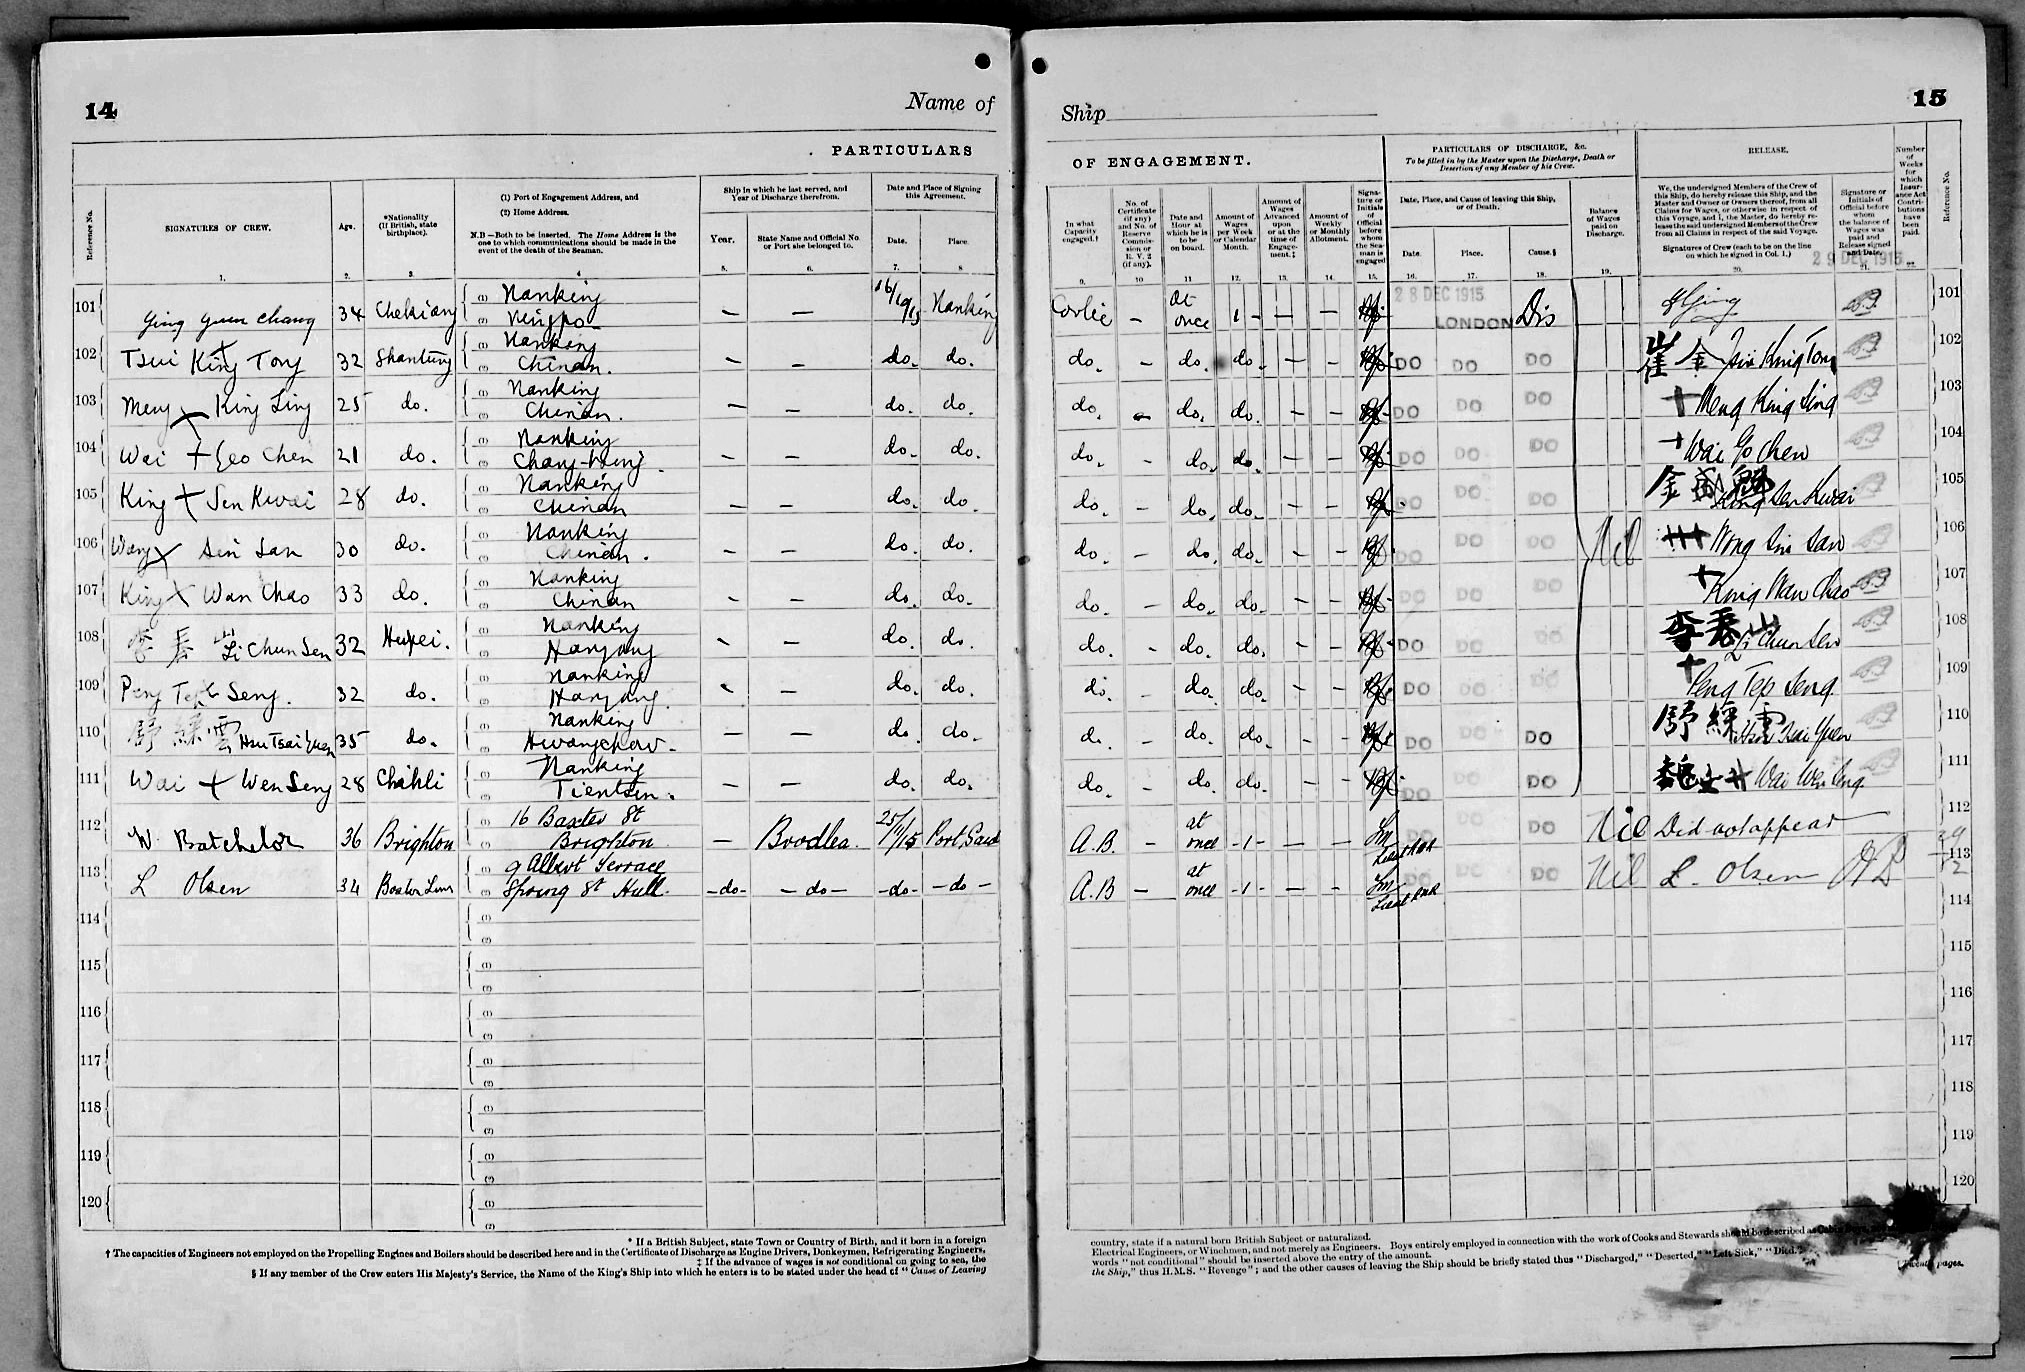 14
Name of
PARTICULARS
Reference No.
SIGNATURES OF CREW.
Age.
*Nationality
(If British, state
birthplace).
(1) Port of Engagement Address, and
(2) Home Address.
N.B—Both to be inserted. The Home Address is the
one to which communications should be made in the
event of the death of the Seaman.
Ship in which he last served, and
Year of Discharge therefrom.
Year.
State Name and Official No.
or Port she belonged to.
Date and Place of Signing
this Agreement.
Date.
Place.
1. 2. 3. 4 5. 6. 7. 8
101 Ying Yuen Chang 34 Chekiang (1) Nanking
(2) Ningpo — — 16/10/15 Nanking
102 Tsui King Tong 32 Shantung (1) Nanking
(2) Chinan. — — do. do.
103 Meng King Ling 25 do. (1) Nanking
(2) Chinan. — — do. do.
104 Wai + Geo Chen 21 do. (1) Nanking
(2) — — do. do.
105 King + Sen Kwai 28 do. (1) Nanking
(2) Chinan — — do. do.
106 Wang X Sin San 30 do. (1) Nanking
(2) Chinan. — — do. do.
107 King X Wan Chao 33 do. (1) Nanking
(2) Chinan — — do. do.
108 李春山 Li Chun Sen 32 Hupei. (1) Nanking
(2) Hanyang — — do. do.
109 Peng Teh Seng. 32 do. (1) Nanking
(2) Hanyang. — — do. do.
110 舒練雲 Hsu Tsai Yuen 35 do. (1) Nanking
(2) Hwangchow. — — do. do.
111 Wai + Wen Seng 28 Chihli (1) Nanking
(2) Tientsin. — — do. do.
112 W. Batchelor 36 Brighton (1) 16 Baxter St
(2) Brighton — Boodlea. 25/11/15 Port Said
113 L Olsen 34 (1) 9 Albert Terrace
(2) Spring St Hull. -do- -do- -do- -do-
114 (1)
(2)
115 (1)
(2)
116 (1)
(2)
117 (1)
(2)
118 (1)
(2)
119 (1)
(2)
120 (1)
(2)
* If a British Subject, state Town or Country of Birth, and if born in a foreign
† The capacities of Engineers not employed on the Propelling Engines and Boilers should be described here and in the Certificate of Discharge as Engine Drivers, Donkeymen, Refrigerating Engineers,
‡ If the advance of wages is not conditional on going to sea, the
§ If any member of the Crew enters His Majesty's Service, the Name of the King's Ship into which he enters is to be stated under the head of "Cause of Leaving
Ship
15
OF ENGAGEMENT.
In what
Capacity
engaged.†
No. of
Certificate
(if any)
and No. of
Reserve
Commis-
sion or
R. V. 2
(if any).
Date and
Hour at
which he is
to be
on board.
Amount of
Wages
per Week
or Calendar
Month.
Amount of
Wages
Advanced
upon
or at the
time of
Engage-
ment.‡
Amount of
Weekly
or Monthly
Allotment.
Signa-
ture or
Initials
of
Official
before
whom
the Sea-
man is
engaged
PARTICULARS OF DISCHARGE, &c.
To be filled in by the Master upon the Discharge, Death or
Desertion of any Member of his Crew.
Date, Place, and Cause of leaving this Ship,
or of Death.
Date.
Place.
Cause.§
Balance
of Wages
paid on
Discharge.
RELEASE.
We, the undersigned Members of the Crew of
this Ship, do hereby release this Ship, and the
Master and Owner or Owners thereof, from all
Claims for Wages, or otherwise in respect of
this Voyage, and I, the Master, do hereby re-
lease the said undersigned Members of the Crew
from all Claims in respect of the said Voyage.
Signatures of Crew (each to be on the line
on which he signed in Col. 1.)
Signature or
Initials of
Official before
whom
the balance of
Wages was
paid and
Release signed
and Date.
Number
of
Weeks
for
which
Insur-
ance Act
Contri-
butions
have
been
paid.
Reference No.
9. 10 11 12. 13. 14. 15. 16. 17. 18. 19. 20. 21. 22.
29 DEC 1915
Coolie — At once 1 — — — 28 DEC 1915 LONDON Dis 101
do. — do. do. — — DO DO DO 崔金 Tsui King Tong 102
do. — do. do. — — DO DO DO + Meng King Ling 103
do. — do. do. — — DO DO DO + Wai Go Chen 104
do. — do. do. — — DO DO DO 金 King Sen Kwai 105
do. — do. do. — — DO DO DO Nil +++ Wong Sin San 106
do. — do. do. — — DO DO DO + King Wan Chao 107
do. — do. do. — — DO DO DO 李春山 Li Chun Sen 108
do. — do. do. — — DO DO DO + Peng Tep Seng. 109
do. — do. do. — — DO DO DO 舒練雲 Hsu Tsai Yuen 110
do. — do. do. — — DO DO DO 魏 Wai Wen Seng 111
A.B. — at once -1- — — Lieut RNR DO DO DO Nil Did not appear 112
A.B — at once -1- — — Lieut RNR DO DO DO Nil L. Olsen 113
114
115
116
117
118
119
120
country, state if a natural born British Subject or naturalized.
Electrical Engineers, or Winchmen, and not merely as Engineers. Boys entirely employed in connection with the work of Cooks and Stewards should be described as
words "not conditional" should be inserted above the entry of the amount.
the Ship," thus H.M.S. "Revenge"; and the other causes of leaving the Ship should be briefly stated thus "Discharged," "Deserted," "Left Sick," "Died."
pages.